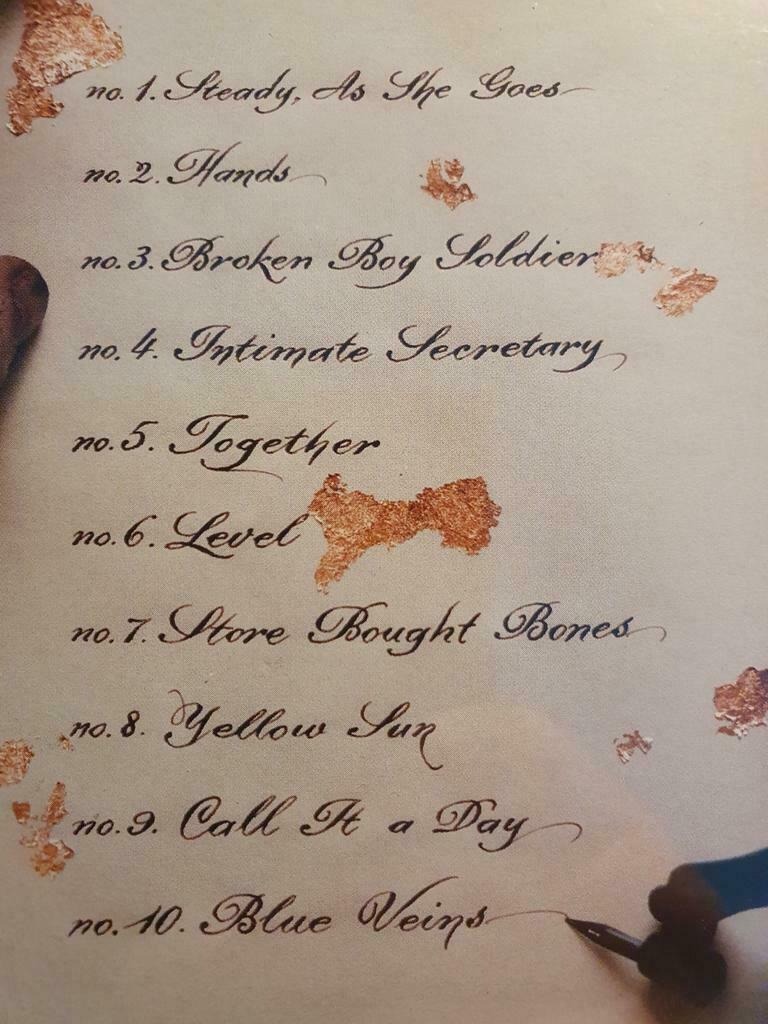 no. 1. Steady, As She Goes
no. 2. Hands
no. 3. Broken Boy Soldier
no. 4. Intimate Secretary
no. 5. Together
no. 6. Level
no. 7. Store Bought Bones
no. 8. Yellow Sun
no. 9. Call It a Day
no. 10. Blue Veins